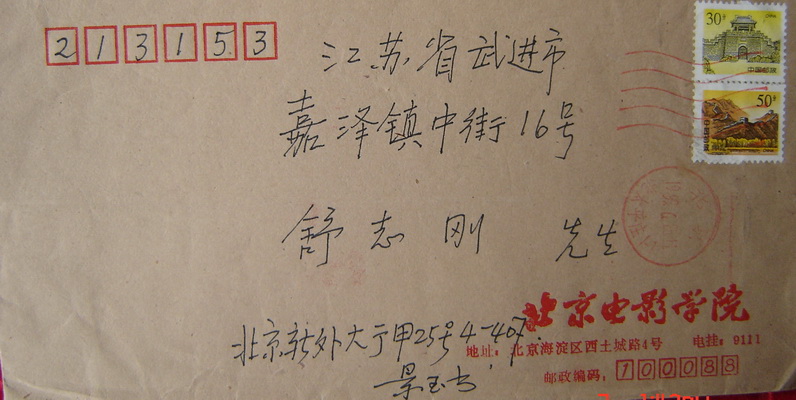 213153
江苏省武进市
嘉泽镇中街16号
舒志刚 先生
30分
中国邮政
50分
北京电影学院
地址：北京海淀区西土城路4号 电挂：9111
邮政编码：100088
北京新外大厅甲25号4-407